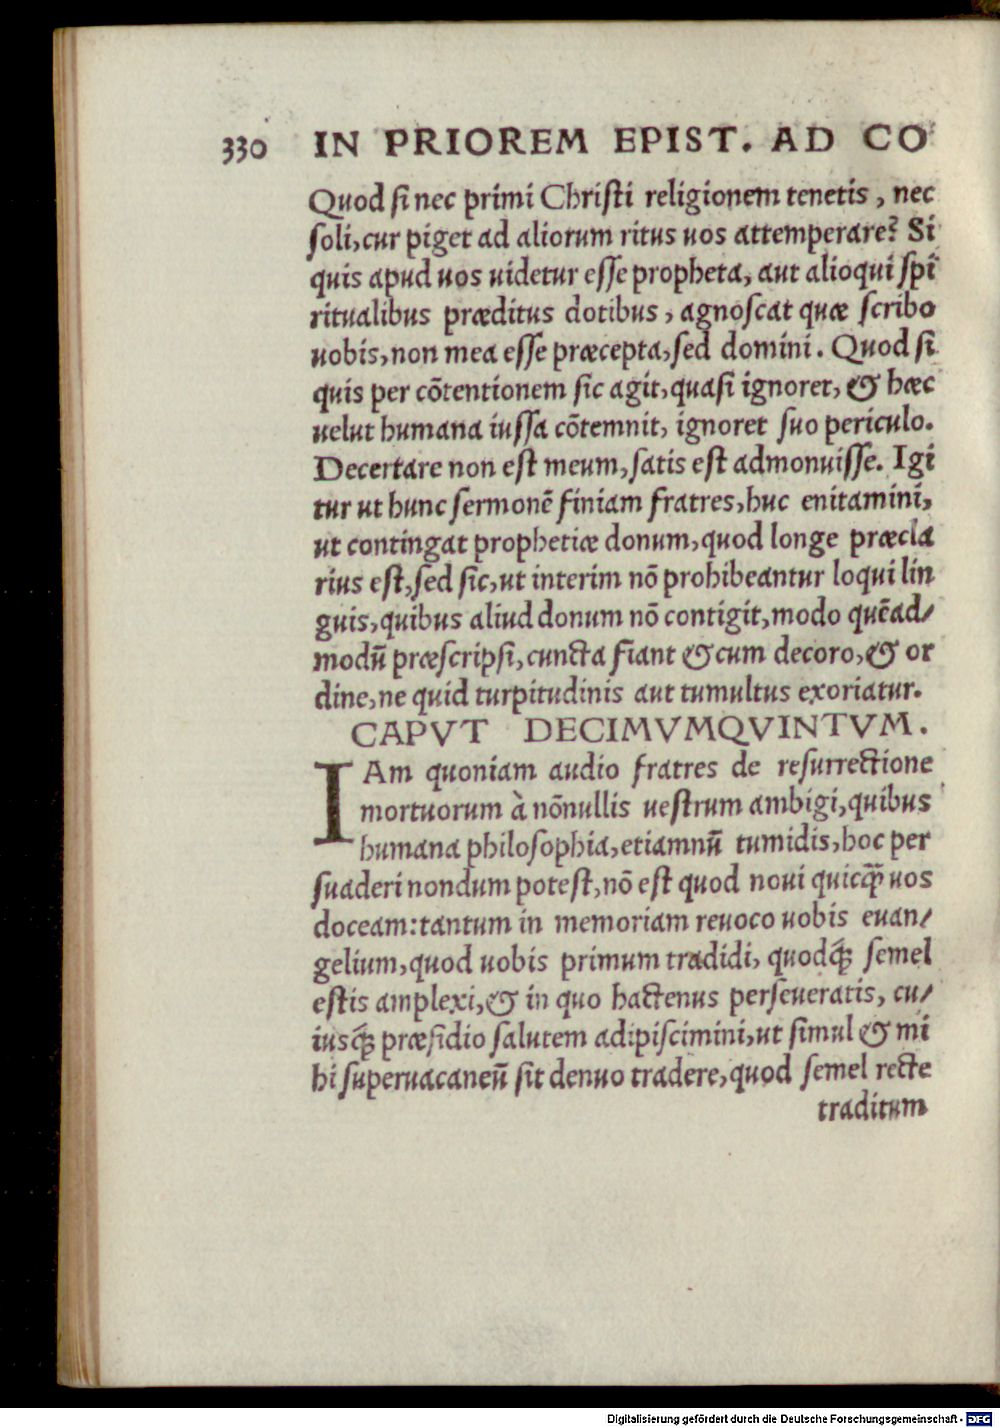 330 IN PRIOREM EPIST. AD CO
Quod si nec primi Christi religionem tenetis, nec
soli, cur piget ad aliorum ritus uos attemperare? Si
quis apud uos uidetur esse propheta, aut alioqui spi
ritualibus præditus dotibus, agnoscat quæ scribo
uobis, non mea esse præcepta, sed domini. Quod si
quis per cõtentionem sic agit, quasi ignoret, & hæc
uelut humana iussa cõtemnit, ignoret suo periculo.
Decertare non est meum, satis est admonuisse. Igi
tur ut hunc sermonẽ finiam fratres, huc enitamini,
ut contingat prophetiæ donum, quod longe præcla
rius est, sed sic, ut interim nõ prohibeantur loqui lin
guis, quibus aliud donum nõ contigit, modo quẽad/
modũ præscripsi, cuncta fiant & cum decoro, & or
dine, ne quid turpitudinis aut tumultus exoriatur.
CAPVT DECIMVMQVINTVM.
IAm quoniam audio fratres de resurrectione
mortuorum à nõnullis uestrum ambigi, quibus
humana philosophia, etiamnũ tumidis, hoc per
suaderi nondum potest, nõ est quod noui quicq̃ uos
doceam: tantum in memoriam reuoco uobis euan/
gelium, quod uobis primum tradidi, quodq́; semel
estis amplexi, & in quo hactenus perseueratis, cu/
iusq́; præsidio salutem adipiscimini, ut simul & mi
hi superuacaneũ sit denuo tradere, quod semel recte
traditum
Digitalisierung gefördert durch die Deutsche Forschungsgemeinschaft - DFG